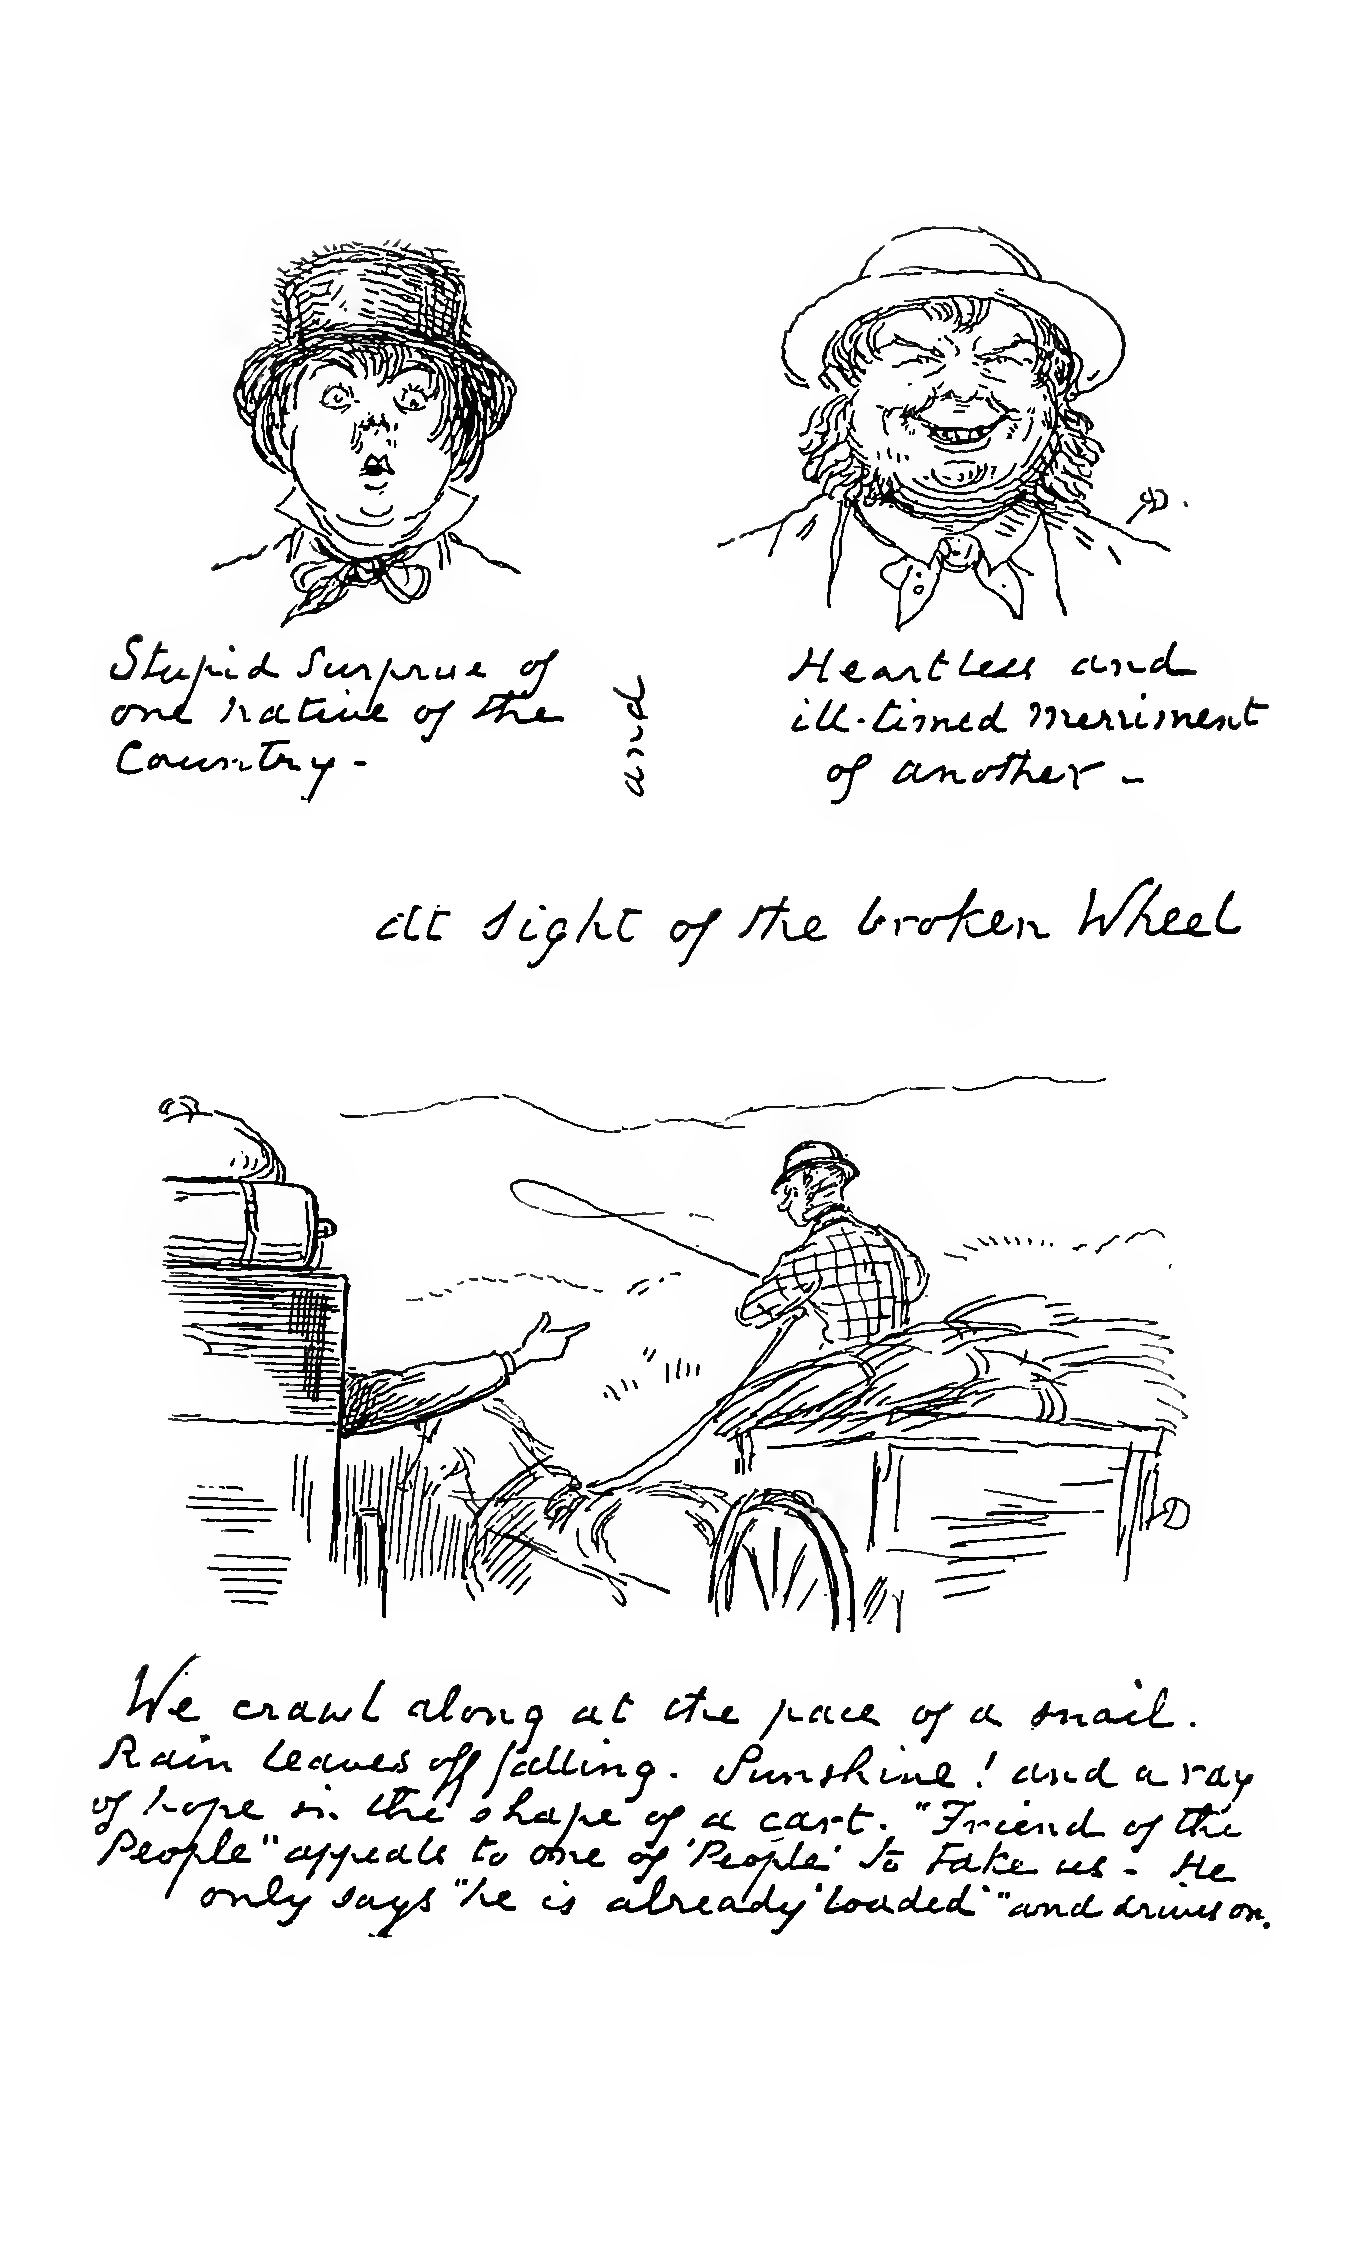 Stupid Surprise of
one native of the
Country -
and
Heartless and
ill-timed Merriment
of another -
At sight of the broken Wheel
We crawl along at the pace of a snail.
Rain leaves off falling. Sunshine! and a ray
of hope in the shape of a cart. "Friend of the
People" appeals to one of 'People' to take us - He
only says "he is already 'loaded'" and drives on.